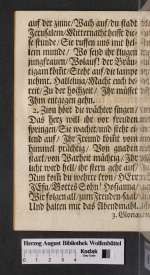 auff der zinne/ Wach auf/ du stadt
Jerusalem/ Mitternacht heißt die-
se stunde/ Sie ruffen uns mit hel-
lem munde/ Wo seyd ihr klugen
jungfrauen/ Wolauf/ der Bräu-
tigam kömt/ Steht auf/ die lampe
nehmt/ Halleluja/ Macht euch be-
reit/ Zu der Hochzeit/ Ihr müsset
Ihm entgegen gehn.
2. Zion hört die wächter singen/
Das herz will ihr vor freuden
springen/ Sie wachet und steht ei-
lend auf/ Ihr Freund kömt vom
himmel prächtig/ Von gnaden
starck/ von Warheit mächtig/ Ihr
licht wird hell/ ihr stern geht auf/
Nun kom du wehrte kron/ HErr
JEsu/ Gottes Sohn/ Hosianna/
Wir folgen all/ zum freuden-saal/
Und halten mit das Abendmahl.
3. Gloria
Herzog August Bibliothek Wolfenbüttel